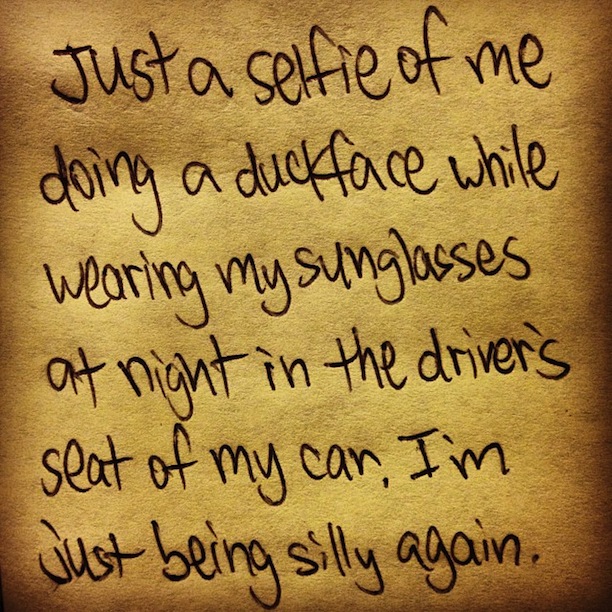 Just a selfie of me
doing a duckface while
wearing my sunglasses
at night in the driver's
seat of my car. I'm
just being silly again.